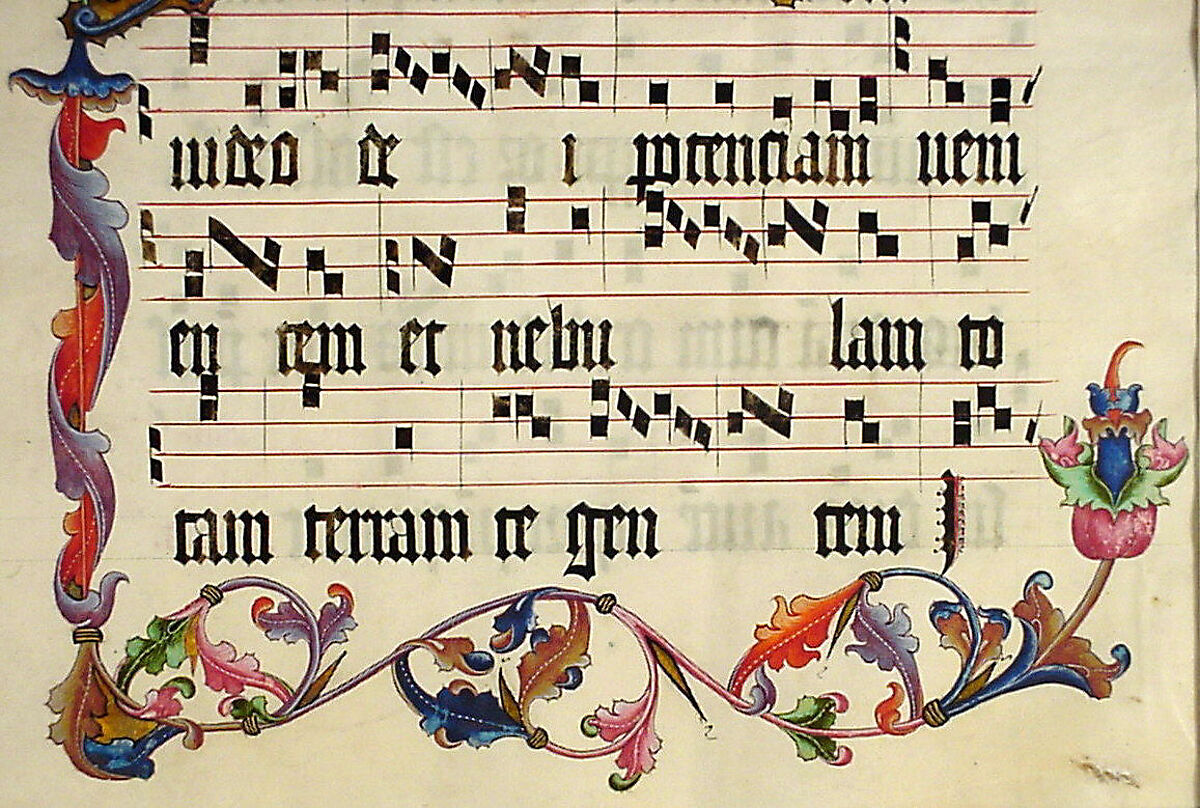 uideo de i potenciam ueni
en tem et nebu lam to
tam terram te gen tem I